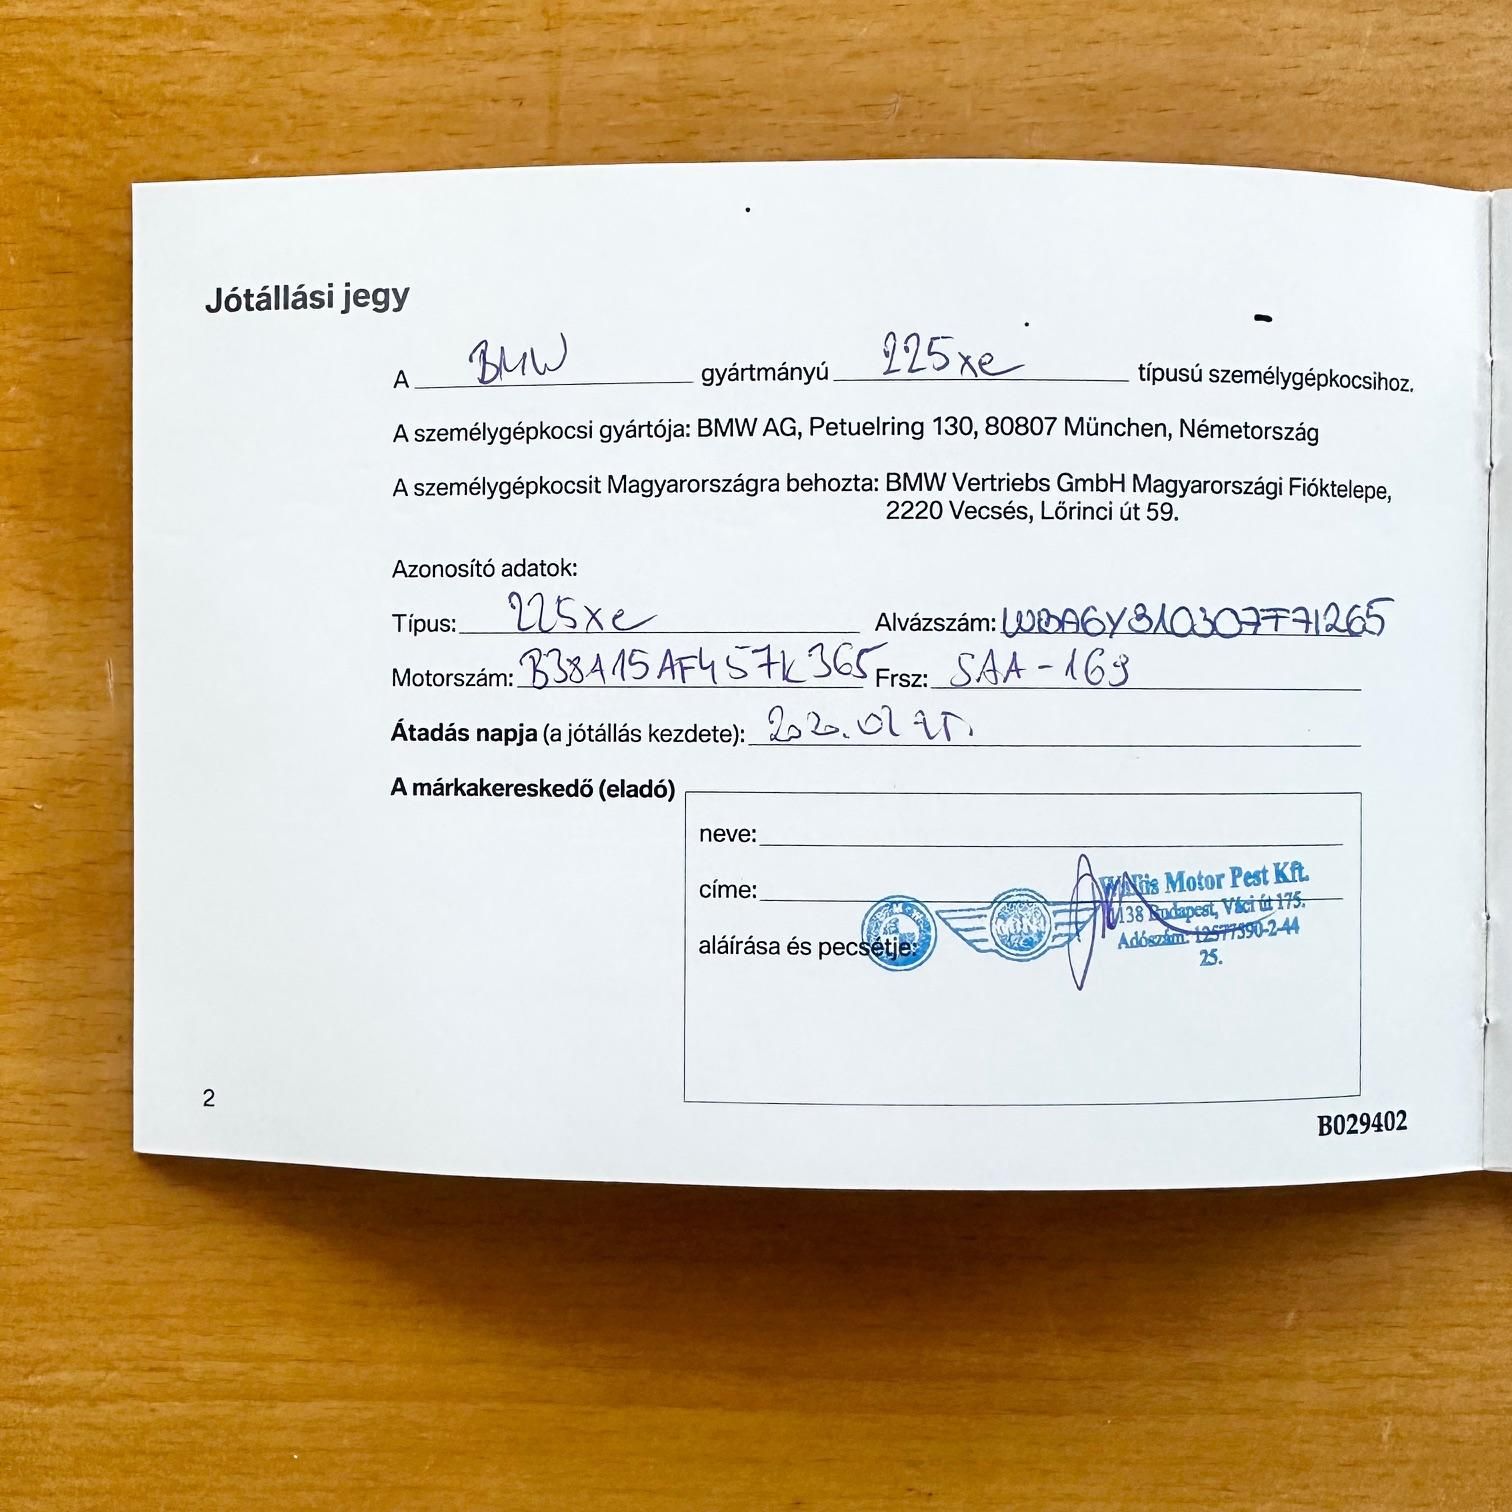 Jótállási jegy
A BMW gyártmányú 225xe típusú személygépkocsihoz.
A személygépkocsi gyártója: BMW AG, Petuelring 130, 80807 München, Németország
A személygépkocsit Magyarországra behozta: BMW Vertriebs GmbH Magyarországi Fióktelepe,
2220 Vecsés, Lőrinci út 59.
Azonosító adatok:
Típus: 225xe Alvázszám: WBA6Y810307F71265
Motorszám: B38A15AF457K365 Frsz: SAA-169
Átadás napja (a jótállás kezdete):
A márkakereskedő (eladó)
neve:
címe:
aláírása és pecsétje:
Wallis Motor Pest Kft.
1138 Budapest, Váci út 175.
Adószám: 12577390-2-44
25.
2
B029402